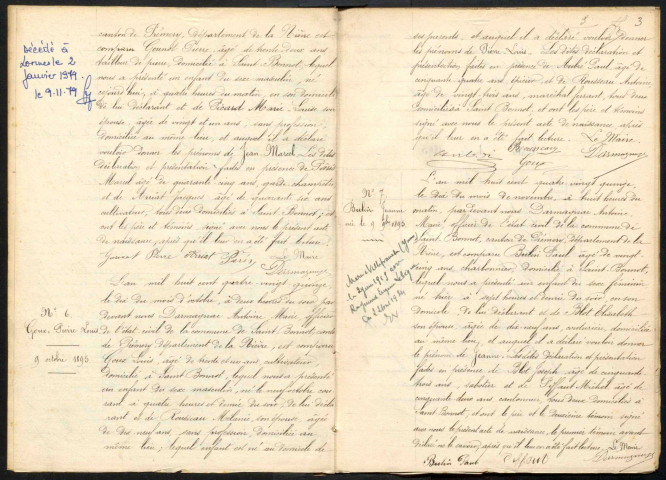 Décédé à
Lormes le 2
janvier 1979.
le 9-11-79
canton de Prémery, département de la Nièvre est
comparu Gounot Pierre, âgé de trente deux ans
domicilié à Saint Bonnot, lequel
nous a présenté un enfant du sexe masculin, né
aujourd'hui, à quatre heures du matin, en son domicile
de lui déclarant et de Picard Marie Louise son
épouse, âgée de vingt et un ans, sans profession,
domiciliée au même lieu, et auquel il a déclaré
vouloir donner les prénoms de Jean Marcel. Les dites
déclaration et présentation faites en présence de
Marcel âgé de quarante cinq ans, garde champêtre
et de âgé de quarante six ans
cultivateur, tous deux domiciliés à Saint Bonnot, et
ont les père et témoins signé avec nous le présent acte
de naissance, après qu'il leur en a été fait lecture.
Le Maire
Darmagnac
N° 6.
Goux, Pierre Louis
9 octobre 1895
L'an mil huit cent quatre vingt quinze,
le dix du mois d'octobre, à deux heures du soir, par
devant nous Darmagnac Antoine, Marie, officier
de l'état civil de la commune de Saint Bonnot, canton
de Prémery département de la Nièvre, est comparu
Goux Louis, âgé de trente et un ans, cultivateur,
domicilié à Saint Bonnot, lequel nous a présenté
un enfant du sexe masculin, né le neuf octobre cou
rant à quatre heures et demie du soir, de lui décla
rant et de Rousseau Mélanie, son épouse, âgée
de dix neuf ans, sans profession, domiciliée au
même lieu; lequel enfant est né au domicile de
3
ses parents, et auquel il a déclaré vouloir donner
les prénoms de Pierre Louis. Les dites déclaration et
présentation faites en présence de Paul, âgé de
cinquante quatre ans, épicier et de Rousseau Antoine,
âgé de vingt huit ans, maréchal ferrant, tous deux
domiciliés à Saint Bonnot, et ont les père et témoins
signé avec nous le présent acte de naissance, après
qu'il leur en a été fait lecture. Le Maire
Rousseau
Goux
Darmagnac
N° 7.
Berlin Jeanne
née le 9 9bre 1895
L'an mil huit cent quatre vingt quinze,
le dix du mois de novembre, à huit heures du
matin, par devant nous Darmagnac Antoine
Marie officier de l'état civil de la commune de
Saint Bonnot, canton de Prémery, département de la
Nièvre, est comparu Berlin Paul, âgé de vingt
cinq ans, charbonnier, domicilié à Saint Bonnot,
lequel nous a présenté un enfant du sexe féminin
né hier à sept heures et demie du soir, en son
domicile, de lui déclarant et de Blot Elisabeth
son épouse, âgée de dix neuf ans, couturière, domiciliée
au même lieu, et auquel il a déclaré vouloir donner
le prénom de Jeanne. Les dites déclaration et présentation
faites en présence de Blot Joseph, âgé de cinquante
trois ans, sabotier et de Michel âgé de
cinquante deux ans cantonnier, tous deux domiciliés à
Saint Bonnot, et ont le père et le deuxième témoin signé
avec nous le présent acte de naissance, le premier témoin ayant
déclaré ne le savoir, après qu'il leur en a été fait lecture. Le Maire
Berlin Paul
Darmagnac